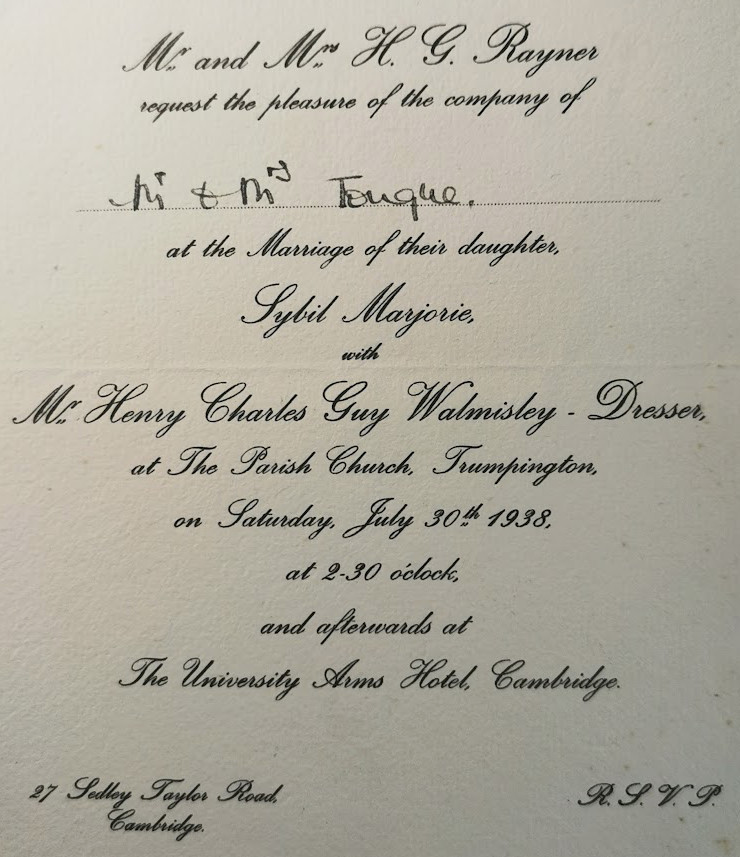 Mr. and Mrs. H. G. Rayner
request the pleasure of the company of
Mr & Mrs Tongue.
at the Marriage of their daughter,
Sybil Marjorie,
with
Mr. Henry Charles Guy Walmisley - Dresser,
at The Parish Church, Trumpington,
on Saturday, July 30th 1938,
at 2-30 o'clock,
and afterwards at
The University Arms Hotel, Cambridge.
27 Sedley Taylor Road,
Cambridge.
R. S. V. P.